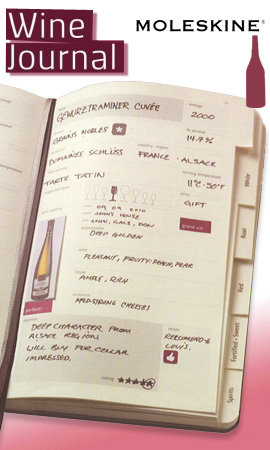 Wine
Journal
MOLESKINE®
GEWÜRZTRAMINER CUVÉE
vintage
2000
GRAINS NOBLES
% alcohol
14.7%
DOMAINES SCHLÜSS
country - region
FRANCE - ALSACE
TARTE TATIN
serving temperature
11°C-50°F
price
GIFT
09 09 2010
JOHN'S HOUSE
JOHN, GALE, DON
DEEP GOLDEN
grand vin
PLEASANT, FRUITY: PEACH, PEAR
AMPLE, RICH
AND STRONG CHEESES
perfect!
DEEP CHARACTER FROM
ALSACE REGION
WILL BUY FOR CELLAR
IMPRESSED.
notes
RECCOMEND to
LOUIS.
rating
White
Rosé
Red
Fortified - Sweet
Spirits